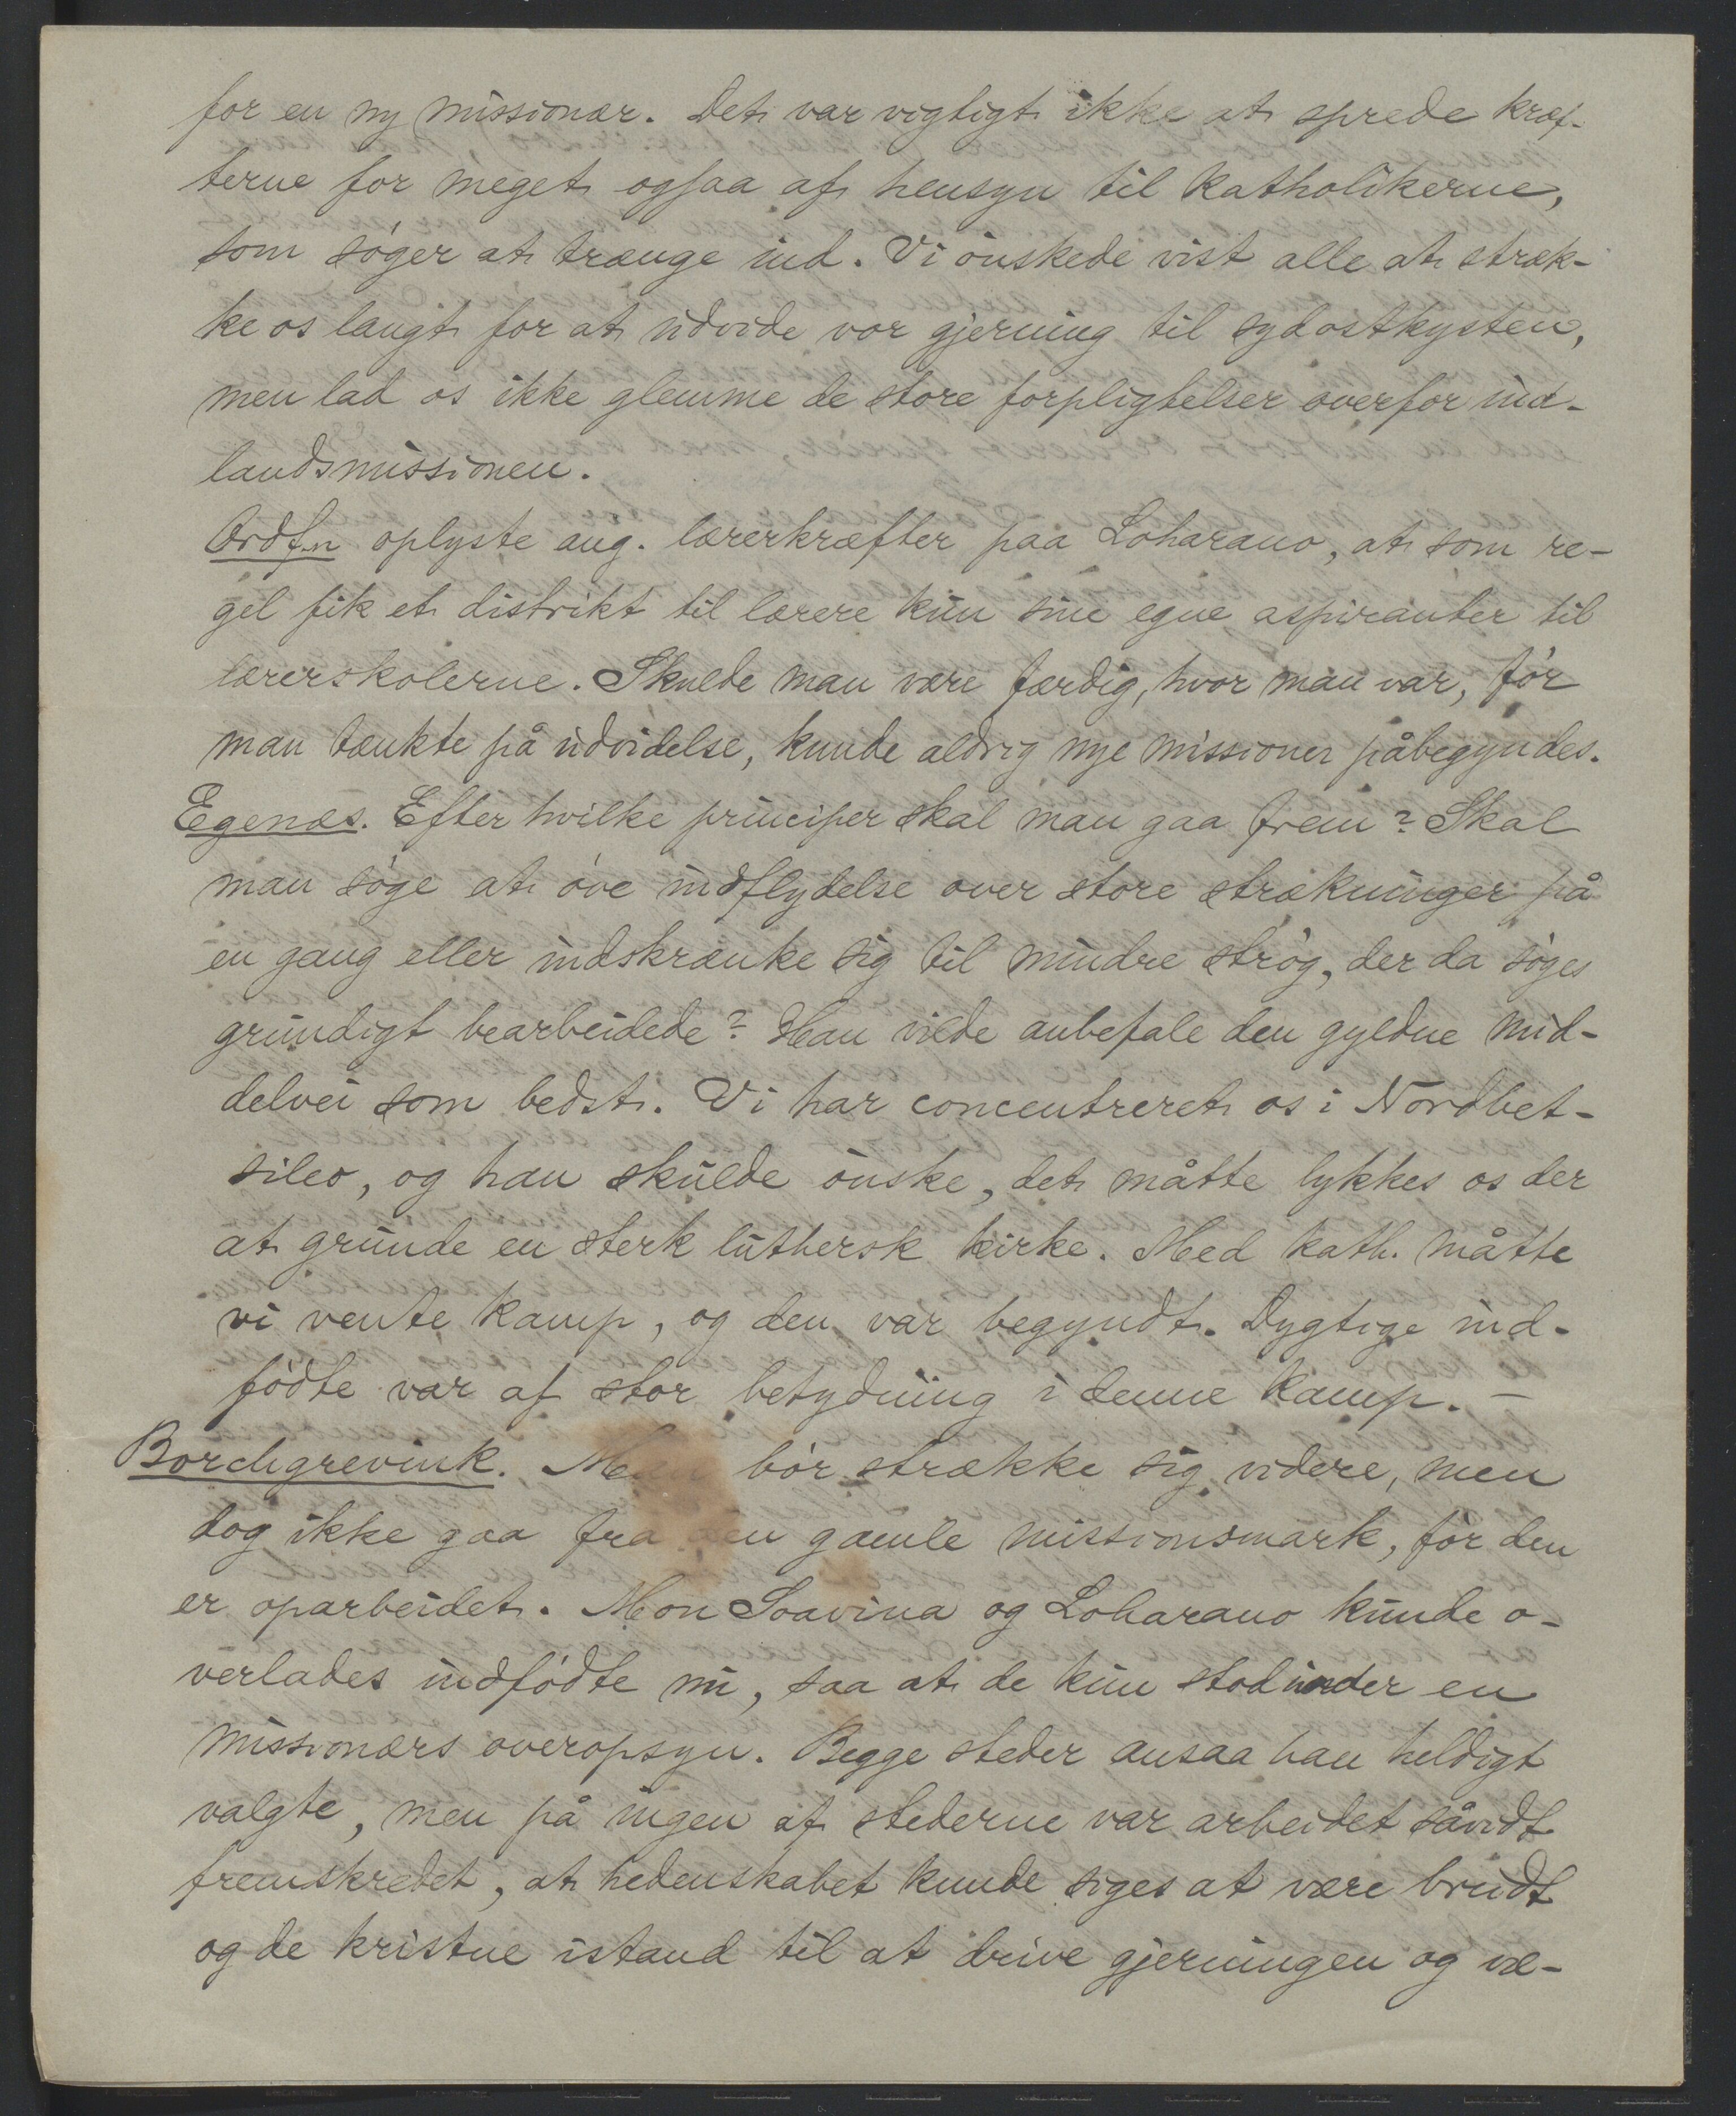 for en ny missionær. Det var vigtigt ikke at sprede kræf-
terne for meget ogsaa af hensyn til Katholikerne,
som søger at trænge ind. Vi ønskede vist alle at stræk-
ke os langt for at udvide vor gjerning til sydostkysten,
men lad os ikke glemme de store forpligtelser overfor ind-
landsmissionen.
Ordf.n oplyste ang. lærerkræfter paa Loharano, at som re-
gel fik et distrikt til lærere kun sine egne aspiranter til
lærerskolerne. Skulde man være færdig, hvor man var, før
man tænkte på udvidelse, kunde aldrig nye missioner påbegyndes.
Egenæs. Efter hvilke principer skal man gaa frem? Skal
man søge at øve indflydelse over store strækninger på
en gang eller indskrænke sig til mindre strøg, der da søges
grundigt bearbeidede? Han vilde anbefale den gyldne mid-
delvei som bedst. Vi har concentreret os i Nordbet-
sileo, og han skulde ønske, det måtte lykkes os der
at grunde en sterk luthersk kirke. Med kath. måtte
vi vente kamp, og den var begyndt. Dygtige ind-
fødte var af stor betydning i denne kamp. —
Borchgrevink. Man bør strække sig videre, men
dog ikke gaa fra den gamle missionsmark, før den
er oparbeidet. Mon Soavina og Loharano kunde o-
verlades indfødte nu, saa at de kun stod under en
missionærs overopsyn. Begge steder ansaa han heldigt
valgte, men på ingen af stederne var arbeidet såvidt
fremskredet, at hedenskabet kunde siges at være brudt
og de kristne istand til at drive gjerningen og væ-